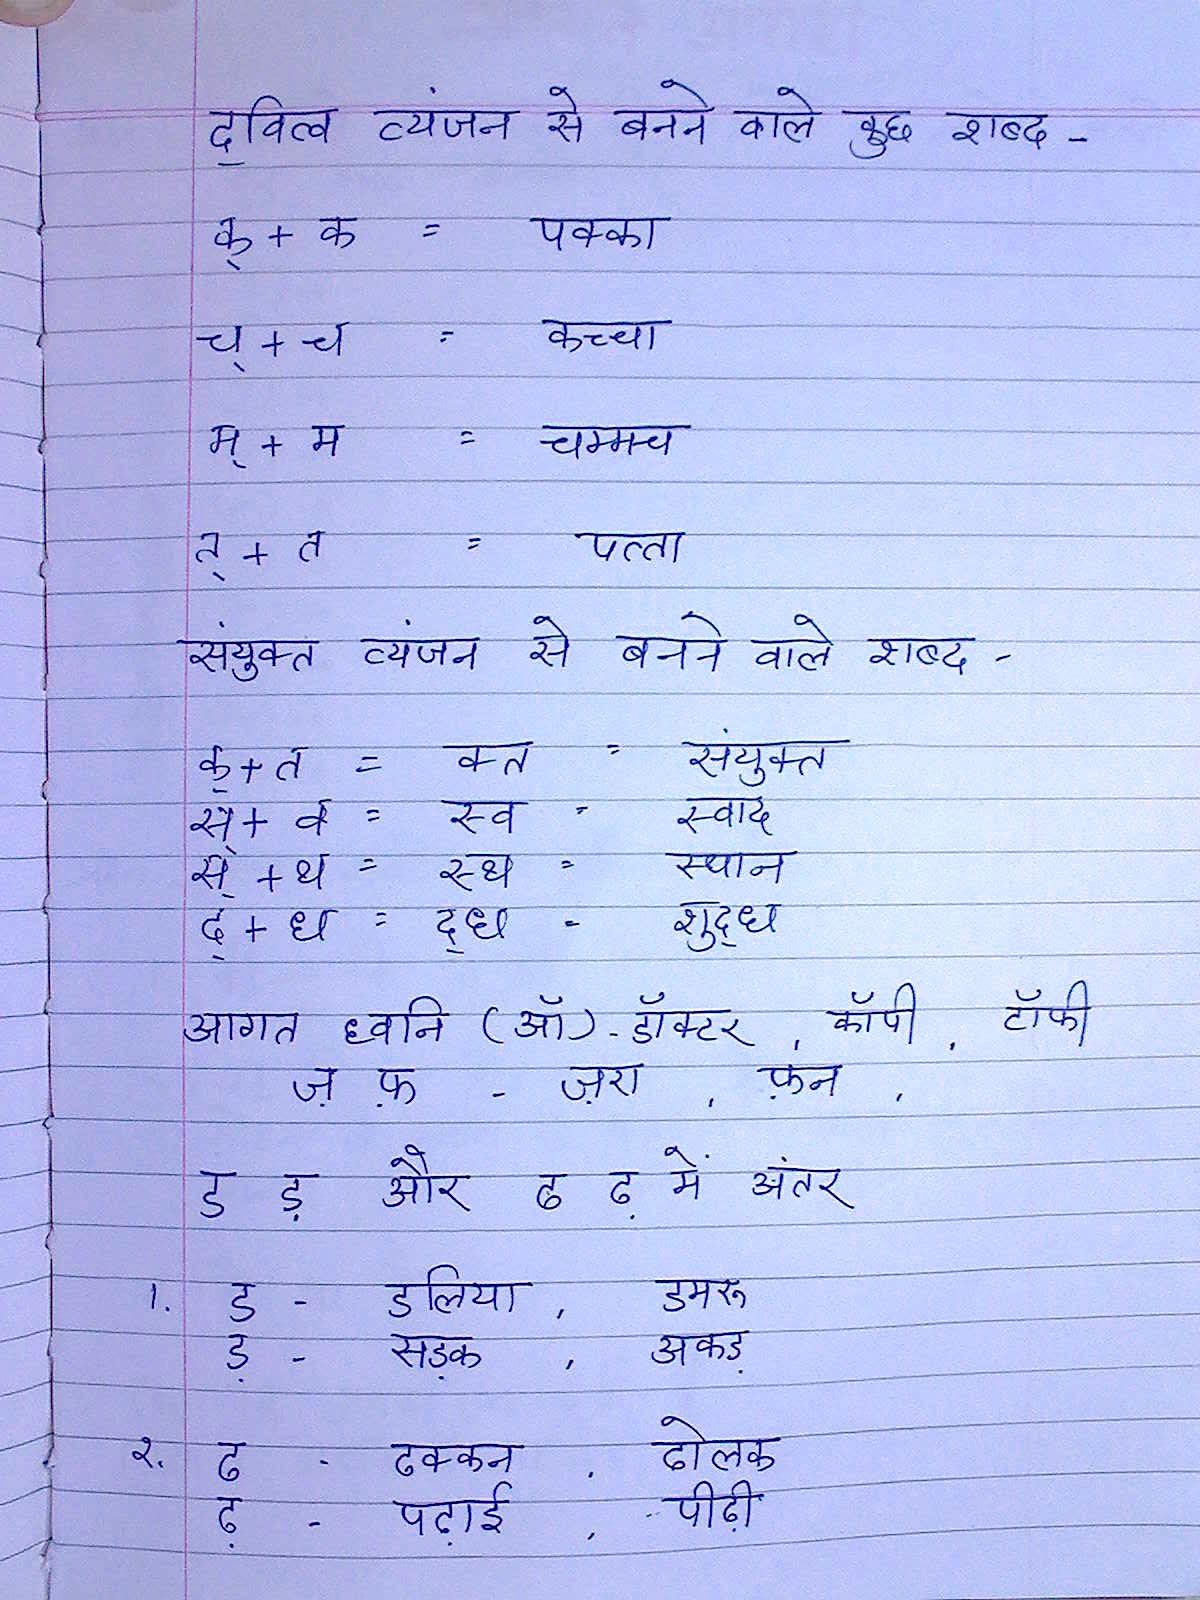 द्‌वित्व व्यंजन से बनने वाले कुछ शब्द -
क् + क = पक्का
च् + च = कच्चा
म् + म = चम्मच
त् + त = पत्ता
संयुक्त व्यंजन से बनने वाले शब्द -
क् + त = क्त = संयुक्त
स् + व = स्व - स्वाद
स् + थ = स्थ = स्थान
द् + ध = द्‌ध - शुद्‌ध
आगत ध्वनि (ऑ) - डॉक्टर , कॉपी , टॉफी
ज़ फ़ - ज़रा , फ़न ,
ड ड़ और ढ ढ़ में अंतर
१. ड - डलिया , डमरू
ड़ - सड़क , अकड़
२. ढ - ढक्कन , ढोलक
ढ़ - पढ़ाई , पीढ़ी